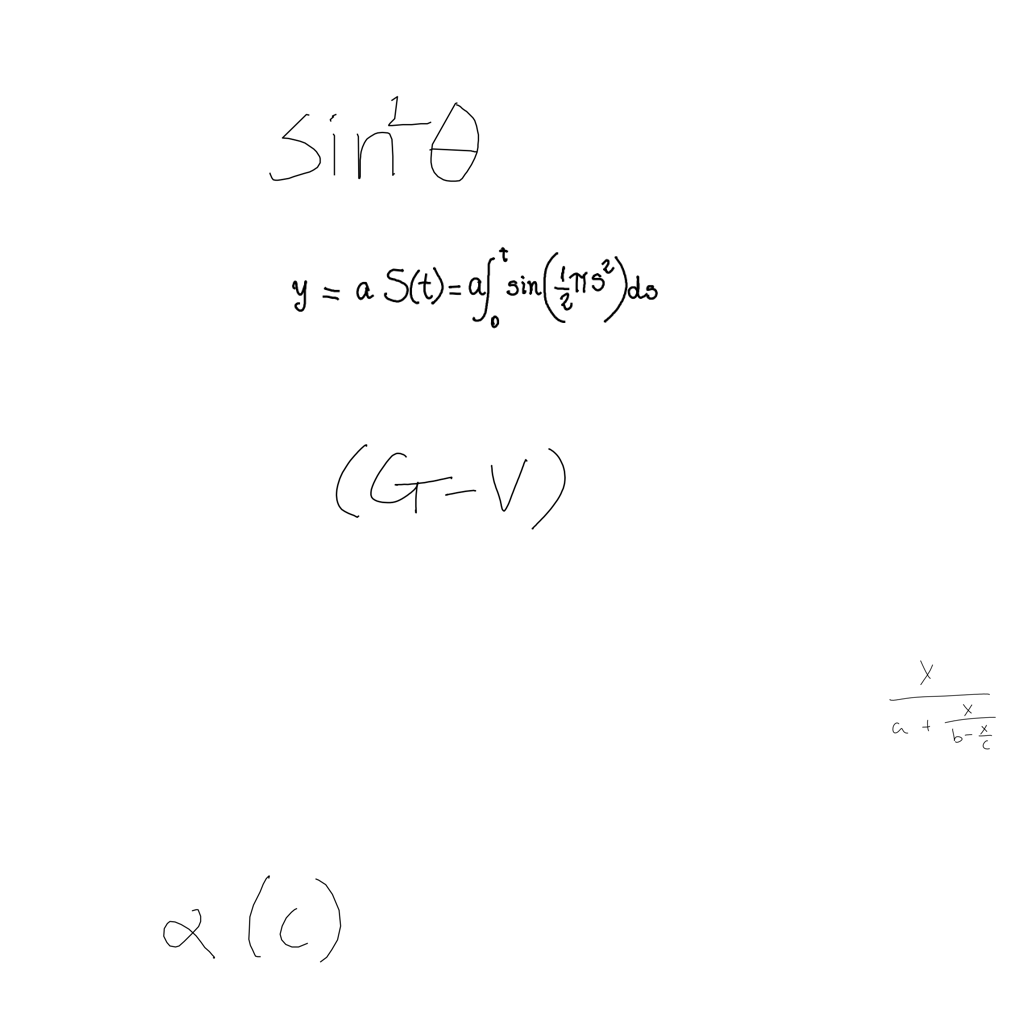 sin¹θ
y = a S(t) = a∫₀ᵗ sin(½πs²)ds
(G-V)
x/(a + x/(b - x/c))
α(c)